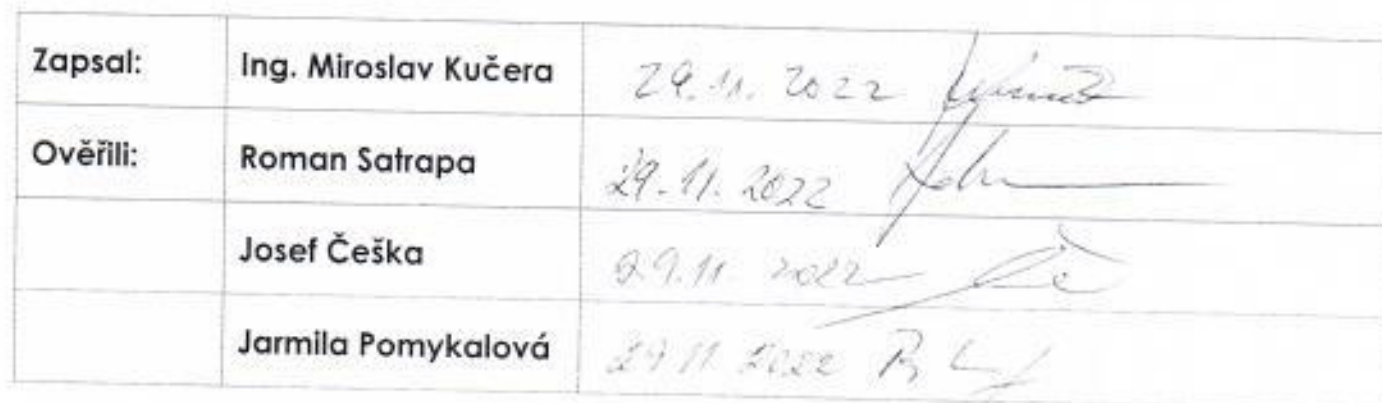 Zapsal: Ing. Miroslav Kučera 29.11. 2022
Ověřili: Roman Satrapa 29.11. 2022
Josef Češka 29.11. 2022
Jarmila Pomykalová 29 11 2022